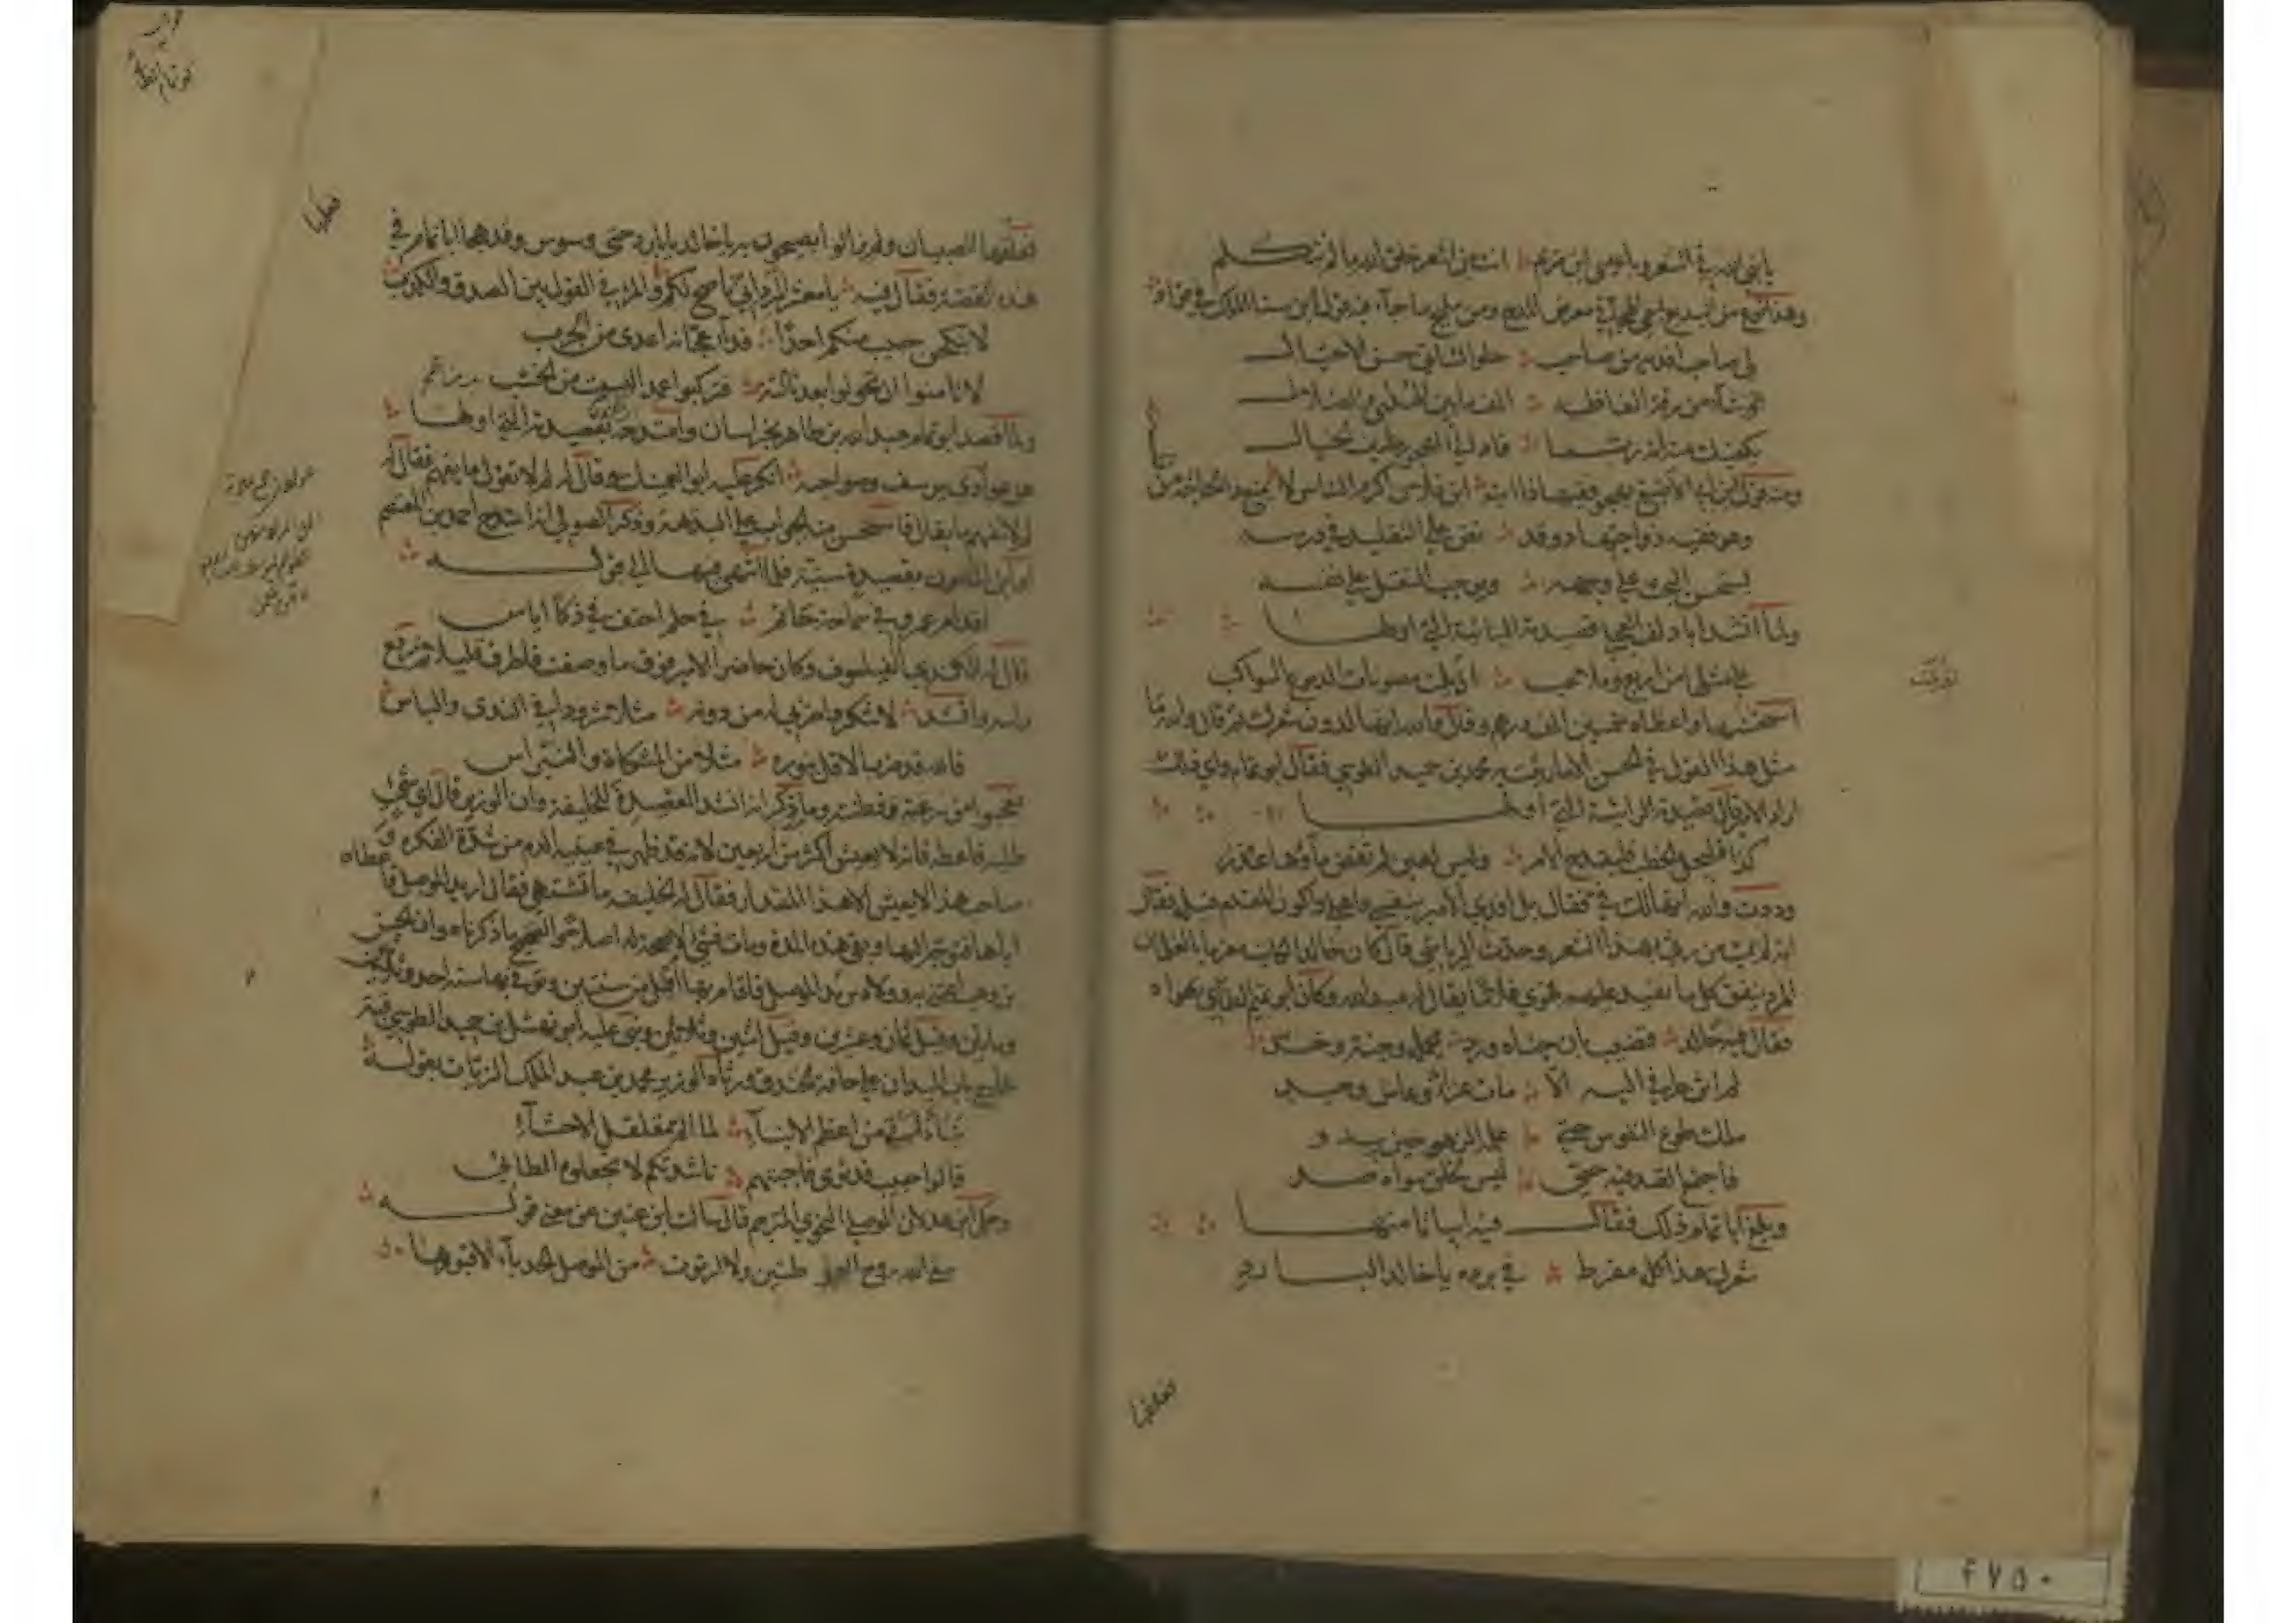 يا نبي الله في الشعر ويا عيسى ابن مريم ؞ انت من اشعر خلق الله ما لم تتكلم
وهذا النوع من البديع يسمى الهجو في معرض المديح ومن مليح ما جاء فيه قول ابن سنا الملك في قواد
لي صاحب افديه من صاحب ؞ حلو التأني حسن الاحتيال
لو شاء من رقة الفاظه ؞ الف ما بين الهدى والضلال
يكفيك منه انه ربما ؞ قاد الى المهجور طيف الخيال
ومنه قول ابن ابي الاصبع يهجو فقيها ذا ابنة ؞ ابن فلان اكرم الناس لا يمنع ذا الحاجة من
وهو فقيه ذو اجتهاد وقد ؞ نص على التقليد في درسه
يستحسن البحث على وجهه ؞ ويوجب الفعل على نفسه
ولما انشد ابا دلف العجلي قصيدته البائية التي اولها
على مثلها من اربع وملاعب ؞ اذيلت مصونات الدموع السواكب
استحسنها واعطاه خمسين الف درهم وقال والله انها لدون شعرك ثم قال والله ما
مثل هذا القول في الحسن الا ما رثيت به محمد بن حميد الطوسي فقال ابو تمام واي ذلك
اراد الامير قال قصيدتك الرائية التي اولها
كذا فليجل الخطب وليفدح الامر ؞ وليس لعين لم تفض ماؤها عذر
وددت والله انها لك في فقال بل افدي الامير بنفسي واهلي واكون المقدم قبله فقال
انه لم يمت من رثي بهذا الشعر وحدث الرياشي قال كان خالد الكاتب مغرما بالغلمان
المرد ينفق كل ما يفيد عليهم فهوي غلاما يقال له عبد الله وكان ابو تمام الطائي يهواه
فقال فيه خالد ؞ قضيب بان جناه ورد ؞ تحمله وجنة وخد
لم اثن طرفي اليه الا ؞ مات عزائي وعاش وجد
ملك طوع النفوس حتى ؞ علمه الزهو حين يبدو
فاجتمع الصد فيه حتى ؞ ليس لخلق سواه صد
وبلغ ابا تمام ذلك فقال فيه ابياتا منها
شعرك هذا كله مفرط ؞ في برده يا خالد البارد
فعلمها الصبيان ولم يزالوا يصيحون به يا خالد يا بارد حتى وسوس وقد هجا ابا تمام في
هذه القصة فقال فيه ؞ يا معشر المرد اني ناصح لكم والمرء في القول بين الصدق والكذب
لا ينكحن حبيب منكم احدا ؞ فداء وجعائه اعدى من الجرب
لا تامنوا ان تحولوا بعد ثالثة ؞ فتركبوا عمدا ليست من الخشب
ولما قصد ابو تمام عبد الله بن طاهر بخراسان وامتدحه بقصيدته التي اولها
هن عوادي يوسف وصواحبه ؞ انكر عليه ابو العميثل وقال له لم لا تقول ما يفهم فقال له
لم لا تفهم ما يقال فاستحسن منه الجواب على البديهة وذكر الصولي انه امتدح احمد بن المعتصم
او ابن المامون بقصيدة سينية فلما انتهى فيها الى قوله
اقدام عمرو في سماحة حاتم ؞ في حلم احنف في ذكاء اياس
قال له الكندي الفيلسوف وكان حاضرا الامير فوق ما وصفت فاطرق قليلا ثم رفع
راسه وانشد ؞ لا تنكروا ضربي له من دونه ؞ مثلا شرودا في الندى والباس
فالله قد ضرب الاقل لنوره ؞ مثلا من المشكاة والنبراس
فعجبوا من سرعته وفطنته ومما ذكر انه انشد القصيدة للخليفة وان الوزير قال اي شيء
طلبه فاعطه فانه لا يعيش اكثر من اربعين لانه قد ظهر في عينيه الدم من شدة الفكر و
صاحب هذا لا يعيش الا هذا المقدار فقال له الخليفة ما تشتهي فقال اريد الموصل فاعطاه
اياها فتوجه اليها وبقي هذه المدة ومات فشيء لا صحة له اصلا والصحيح ما ذكرناه وان الحسن
بن وهب اعتنى به وولاه بريد الموصل فاقام بها اقل من سنتين وتوفي بها سنة احدى وثلاثين
ومايتين وقيل ثمان وعشرين وقيل اثنين وثلاثين وبنى عليه ابو نهشل بن حميد الطوسي قبة
خارج باب الميدان على حافة الخندق ورثاه الوزير محمد بن عبد الملك الزيات بقوله
نبأ اتى من اعظم الانباء ؞ لما الم مقلقل الاحشاء
قالوا حبيب قد ثوى فاجبتهم ؞ ناشدتكم لا تجعلوه الطائي
وحكى ابن عدلان الموصلي النحوي المترجم قال سالت ابن عنين عن معنى قوله
سقى الله روح الغوطتين ولا ارتوت ؞ من الموصل الحدباء الا قبورها
٤٧٥٠